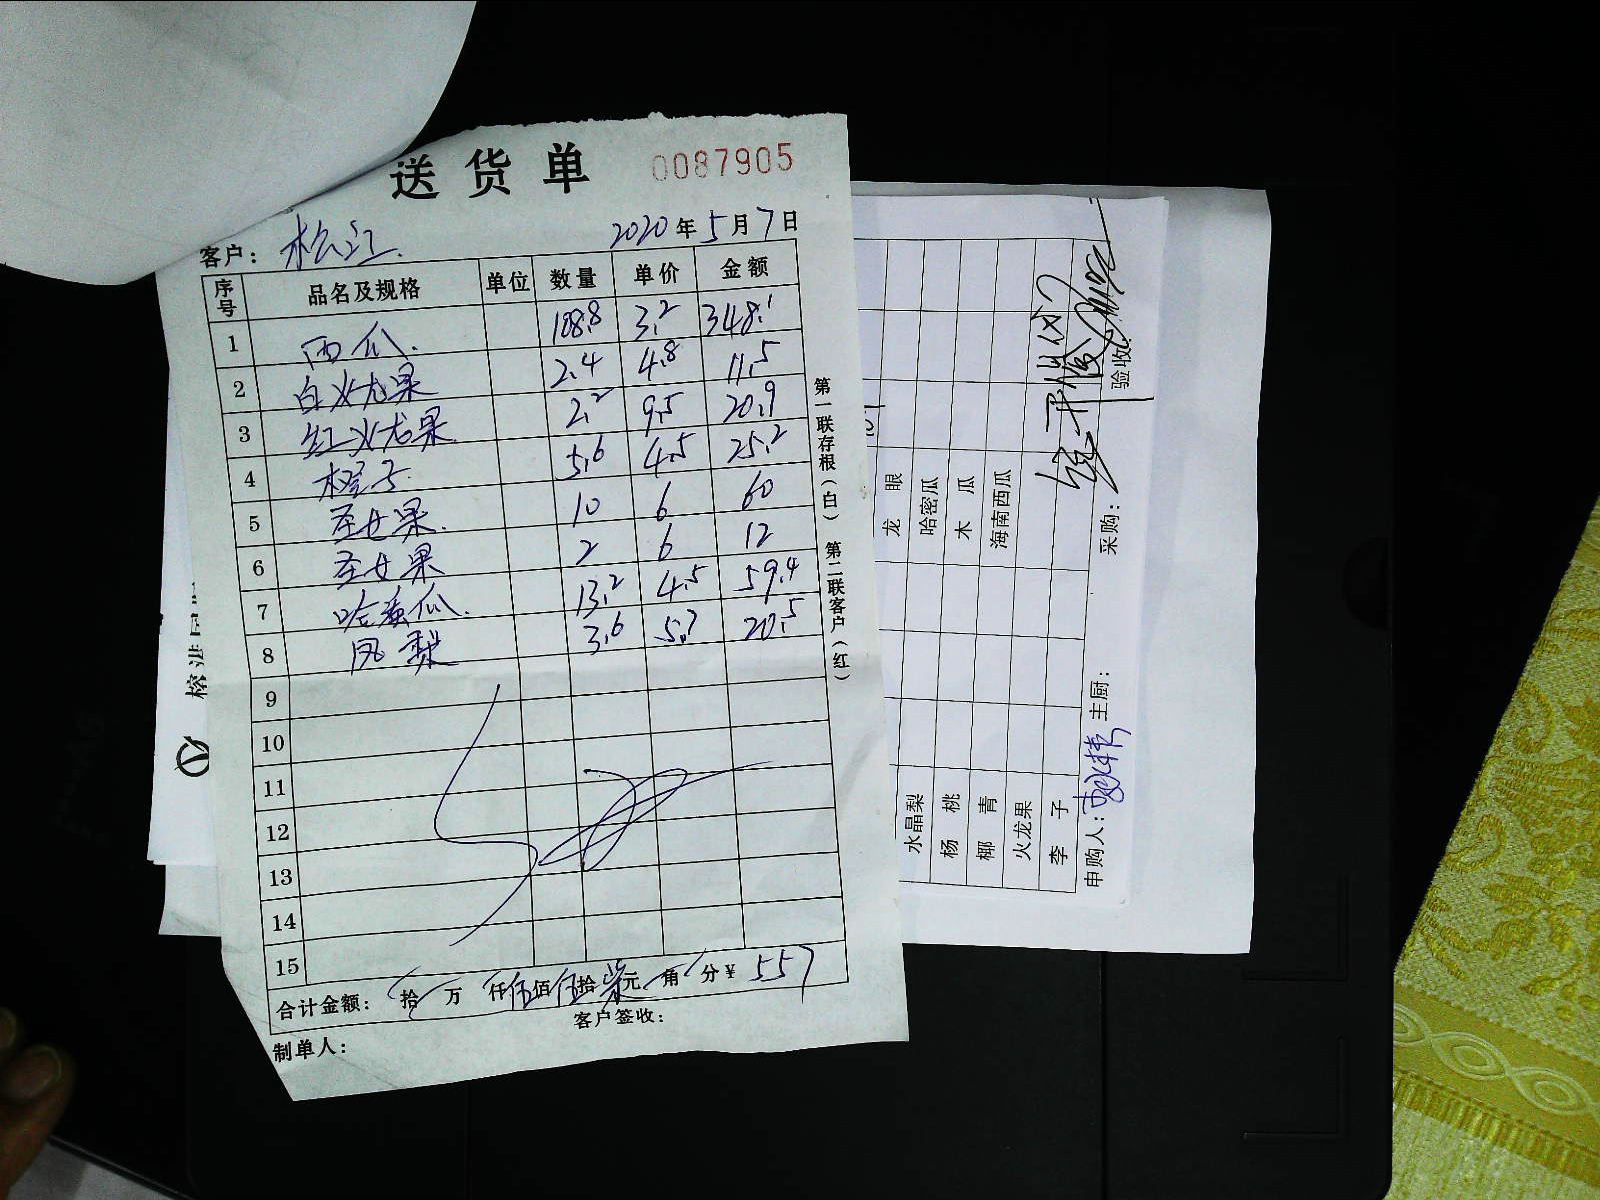 送货单 0087905
客户： 松江 2020年5月7日
序号 品名及规格 单位 数量 单价 金额
1 西瓜 108.8 3.2 348.1
2 白火龙果 2.4 4.8 11.5
3 红火龙果 2.2 9.5 20.9
4 橙子 5.6 4.5 25.2
5 圣女果 10 6 60
6 圣女果 2 6 12
7 哈密瓜 13.2 4.5 59.4
8 凤梨 3.6 5.7 20.5
9
10
11
12
13
14
15
合计金额： 拾 万 仟伍佰伍拾柒元 角 分￥ 557
制单人： 客户签收：
第一联存根（白） 第二联客户（红）
水晶梨 龙眼
杨桃 哈密瓜
椰青 木瓜
火龙果 海南西瓜
李子
申购人： 主厨： 采购： 验收